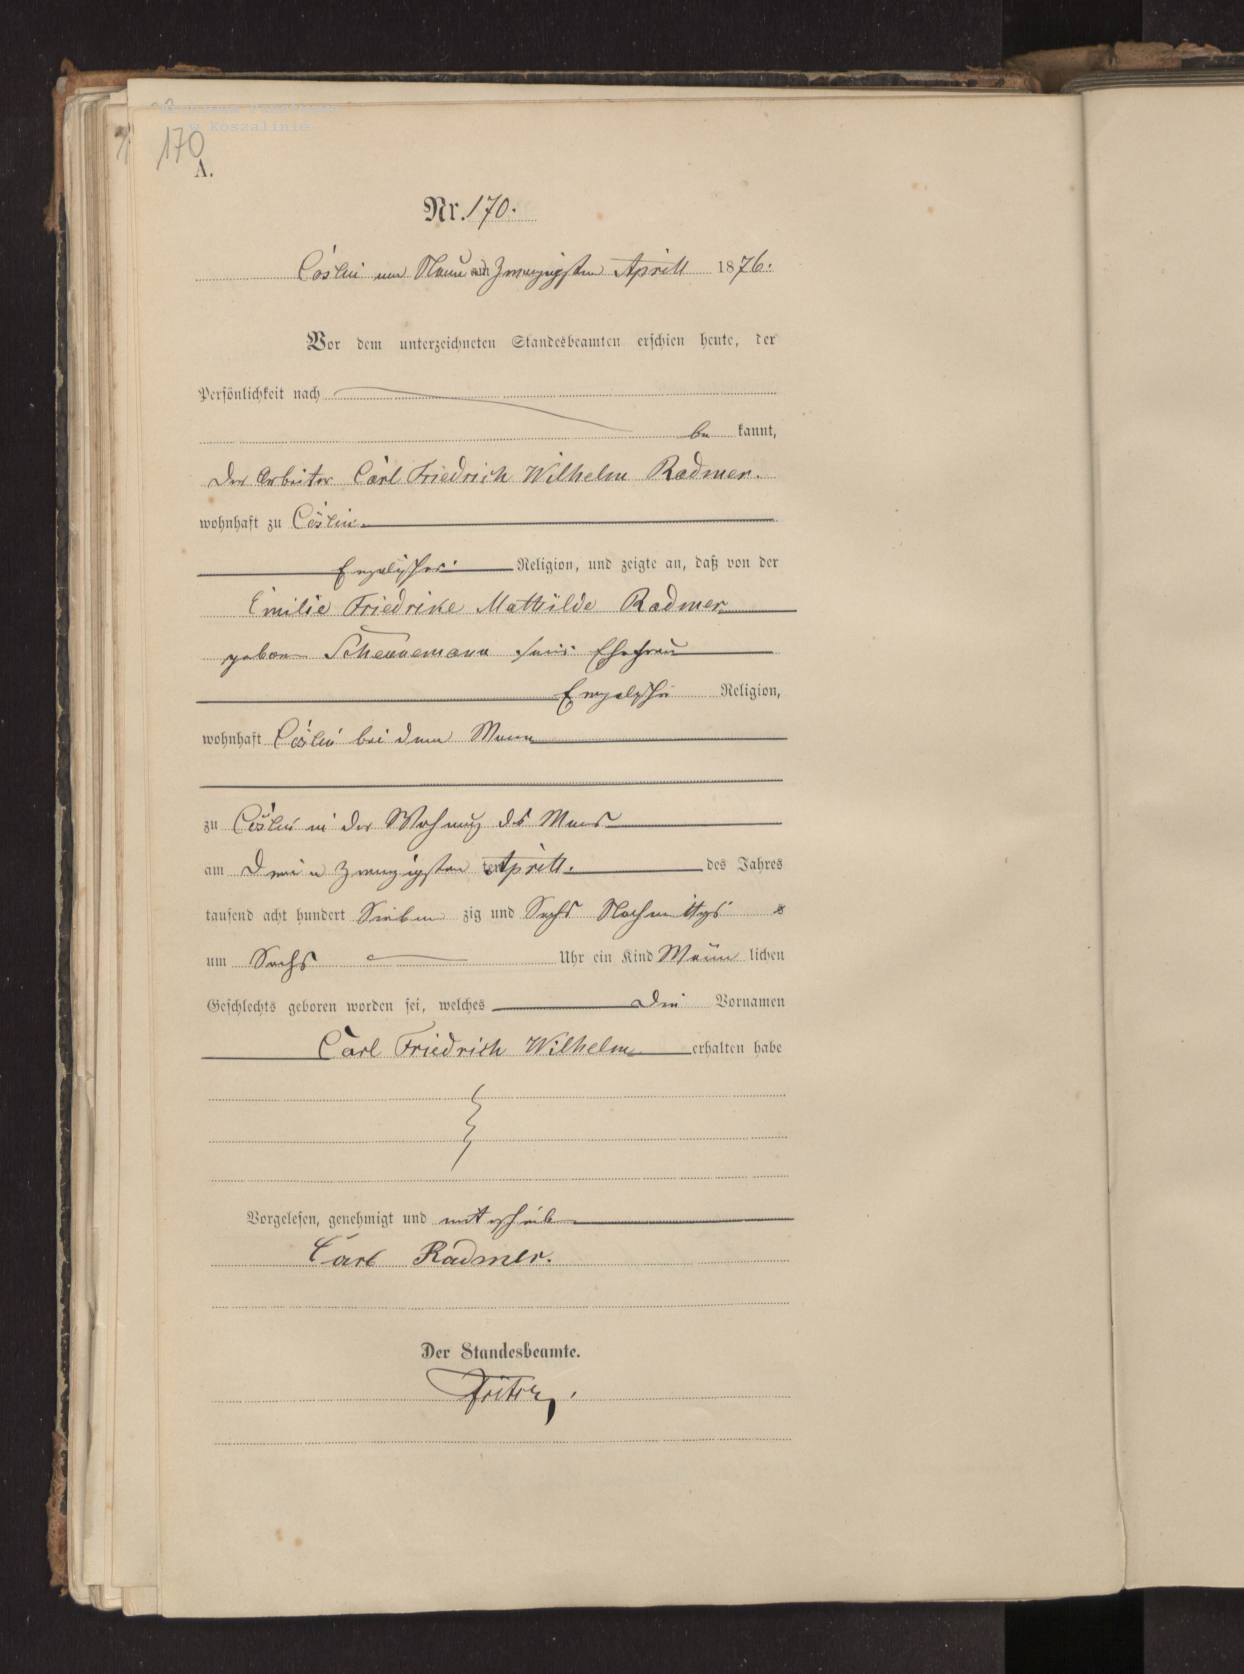 170
A.
Nr. 170.
Cöslin am Neun und zwanzigsten Aprill 1876.
Vor dem unterzeichneten Standesbeamten erschien heute, der
Persönlichkeit nach
be kannt,
der Arbeiter Carl Friedrich Wilhelm Radmer.
wohnhaft zu Cöslin
Evgelischer Religion, und zeigte an, daß von der
Emilie Friedrike Mathilde Radmer
geboren Schennemann seine Ehefrau
Evgelische Religion,
wohnhaft Cöslin bei dem Mann
zu Cöslin in der Wohnung des Manns
am zwanzigsten ten Aprill. des Jahres
tausend acht hundert Sieben zig und Sechs Nachmittags
um Sechs Uhr ein Kind Männ lichen
Geschlechts geboren worden sei, welches die Vornamen
Carl Friedrich Wilhelm erhalten habe
Vorgelesen, genehmigt und
Carl Radmer.
Der Standesbeamte.